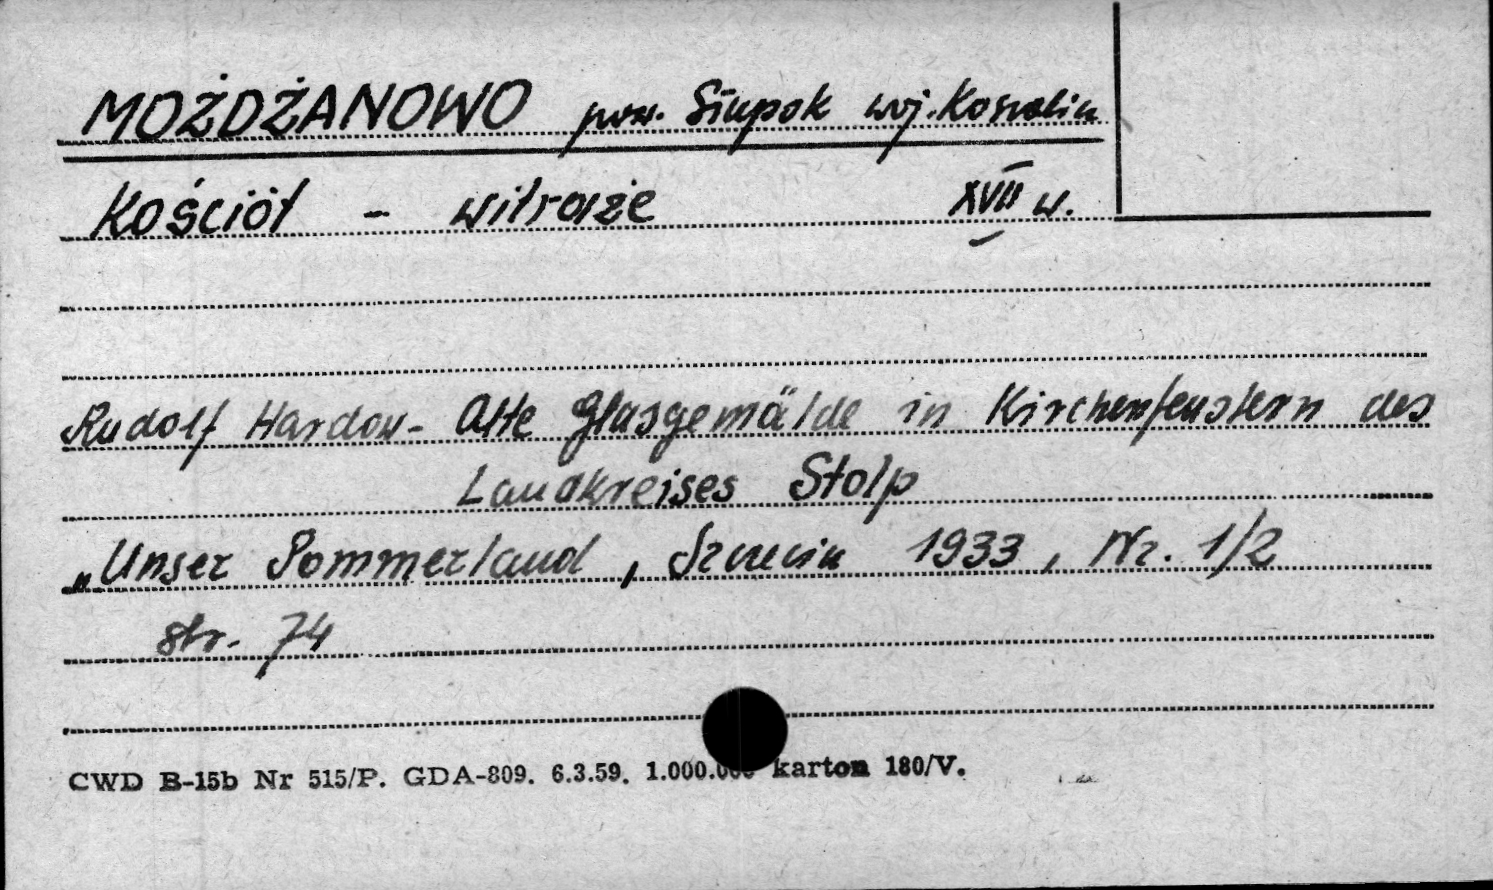 MOŻDŻANOWO pow. Słupsk woj. Koszalin
Kościół - witraże XVII w.
Rudolf Hardow - Alte Glasgemälde in Kirchenfenstern des
Landkreises Stolp
„Unser Pommerland, Szczecin 1933, Nr. 1/2
str. 74
CWD B-15b Nr 515/P. GDA-809. 6.3.59. 1.000.000 karton 180/V.